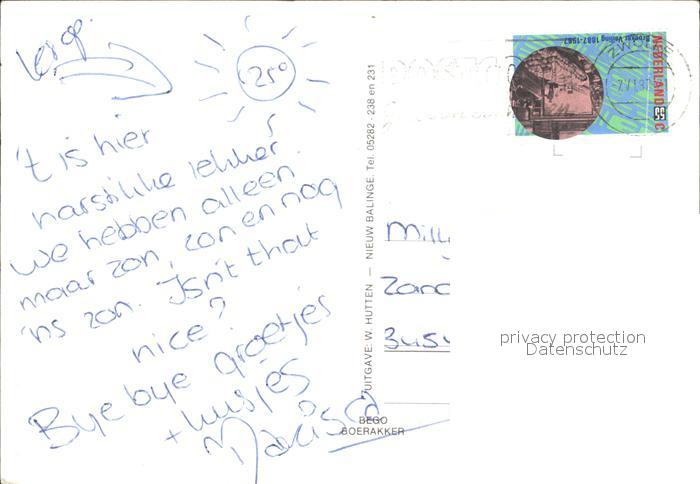 25°
't is hier
harstikke lekker.
we hebben alleen
maar zon, zon en nog
'ns zon. Isn't that
nice?
Bye bye groetjes
+ kusjes
UITGAVE: W. HUTTEN — NIEUW BALINGE. Tel. 05282 - 238 en 231
BEGO
BOERAKKER
NEDERLAND
55 C
Broeker Veiling 1887-1987
ZWO
Milly
Zand
privacy protection
Datenschutz